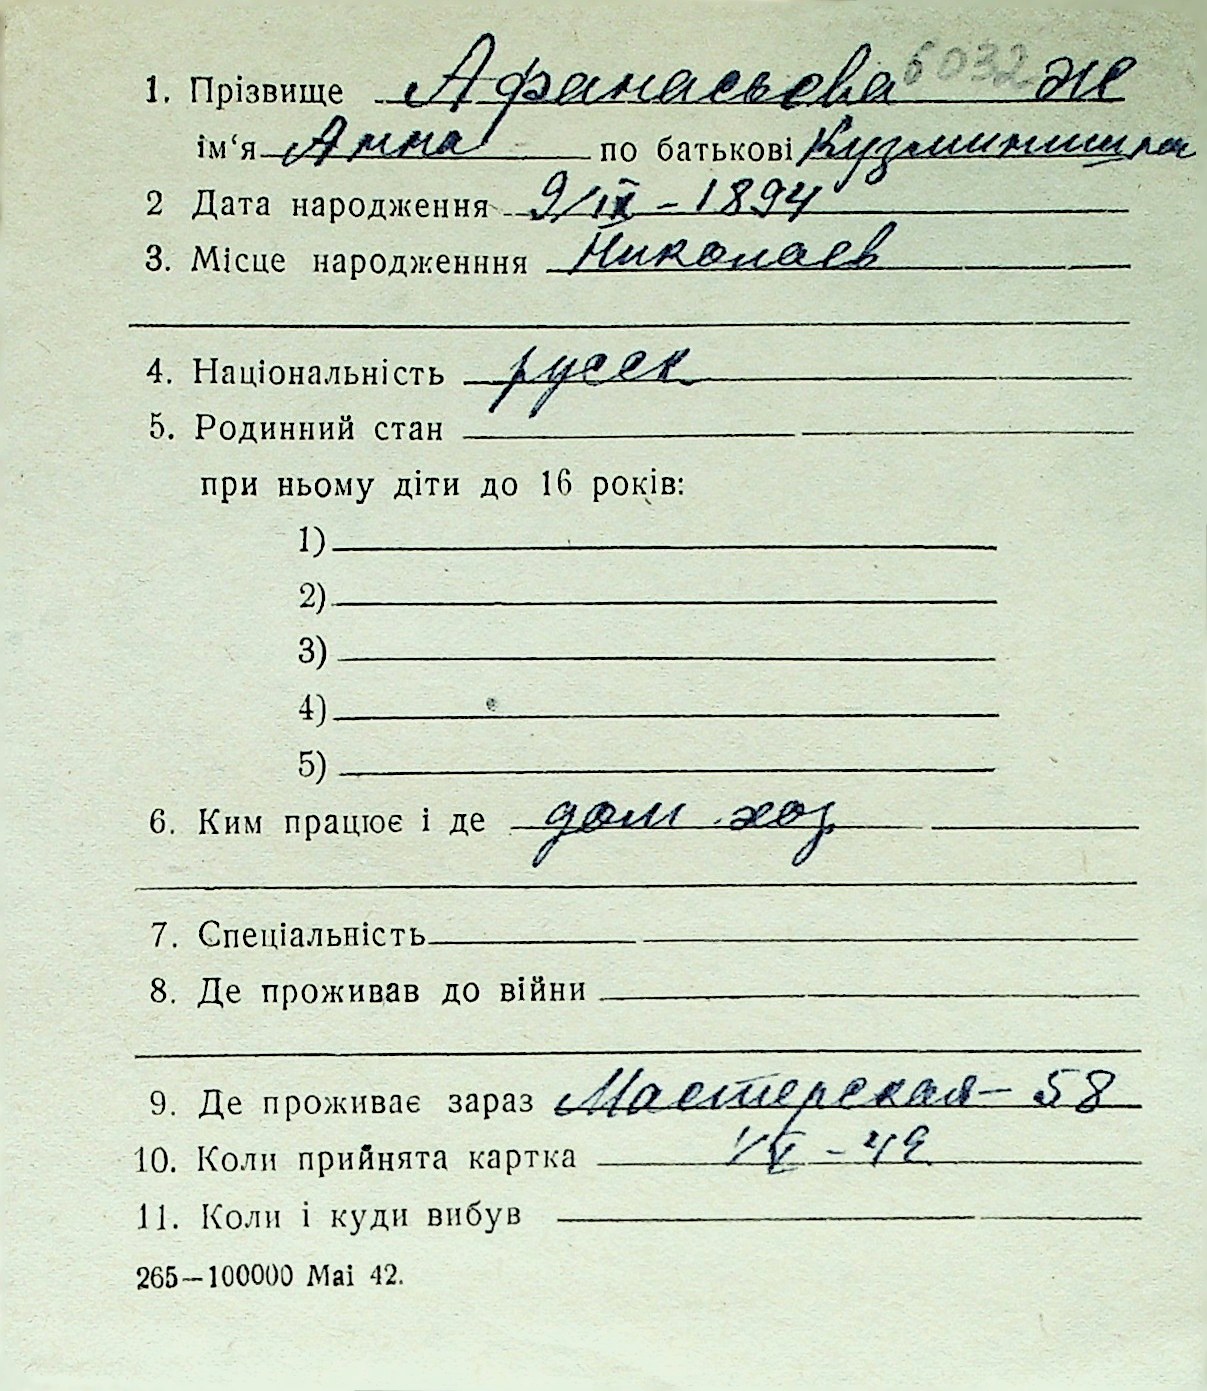 6032
1. Прізвище Афанасьева ж
ім‘я Анна по батькові Кузминишна
2 Дата народження 9/IX – 1894
3. Місце народженння Николаев
4. Національність русск
5. Родинний стан
при ньому діти до 16 років:
1)
2)
3)
4)
5)
6. Ким працює і де дом. хоз.
7. Спеціальність
8. Де проживав до війни
9. Де проживає зараз Мастерская – 58
10. Коли прийнята картка
11. Коли і куди вибув
265—100000 Mai 42.